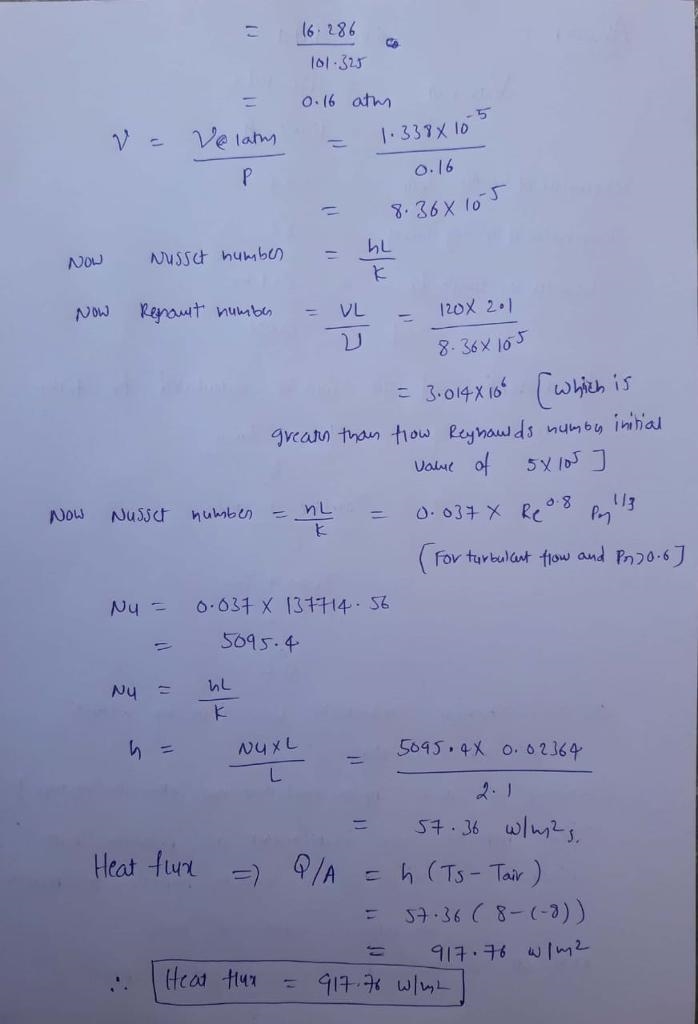 = 16.286 / 101.325
= 0.16 atm
ν = ν@1atm / P = 1.338 X 10^-5 / 0.16
= 8.36 X 10^-5
Now Nusset number = hL / K
Now Regnaut number = VL / ν = 120 X 2.1 / 8.36 X 10^5
= 3.014 X 10^6 [which is
greater than flow Reynawlds number initial
value of 5 X 10^5 ]
Now Nusset number = hL / K = 0.037 X Re^0.8 Pr^1/3
[For turbulent flow and Pr>0.6]
Nu = 0.037 X 137714.56
= 5095.4
Nu = hL / K
h = Nu X L / L = 5095.4 X 0.02364 / 2.1
= 57.36 w/m2 s.
Heat flux => Q/A = h (Ts - Tair)
= 57.36 ( 8-(-8))
= 917.76 w/m2
∴ Heat flux = 917.76 w/m2